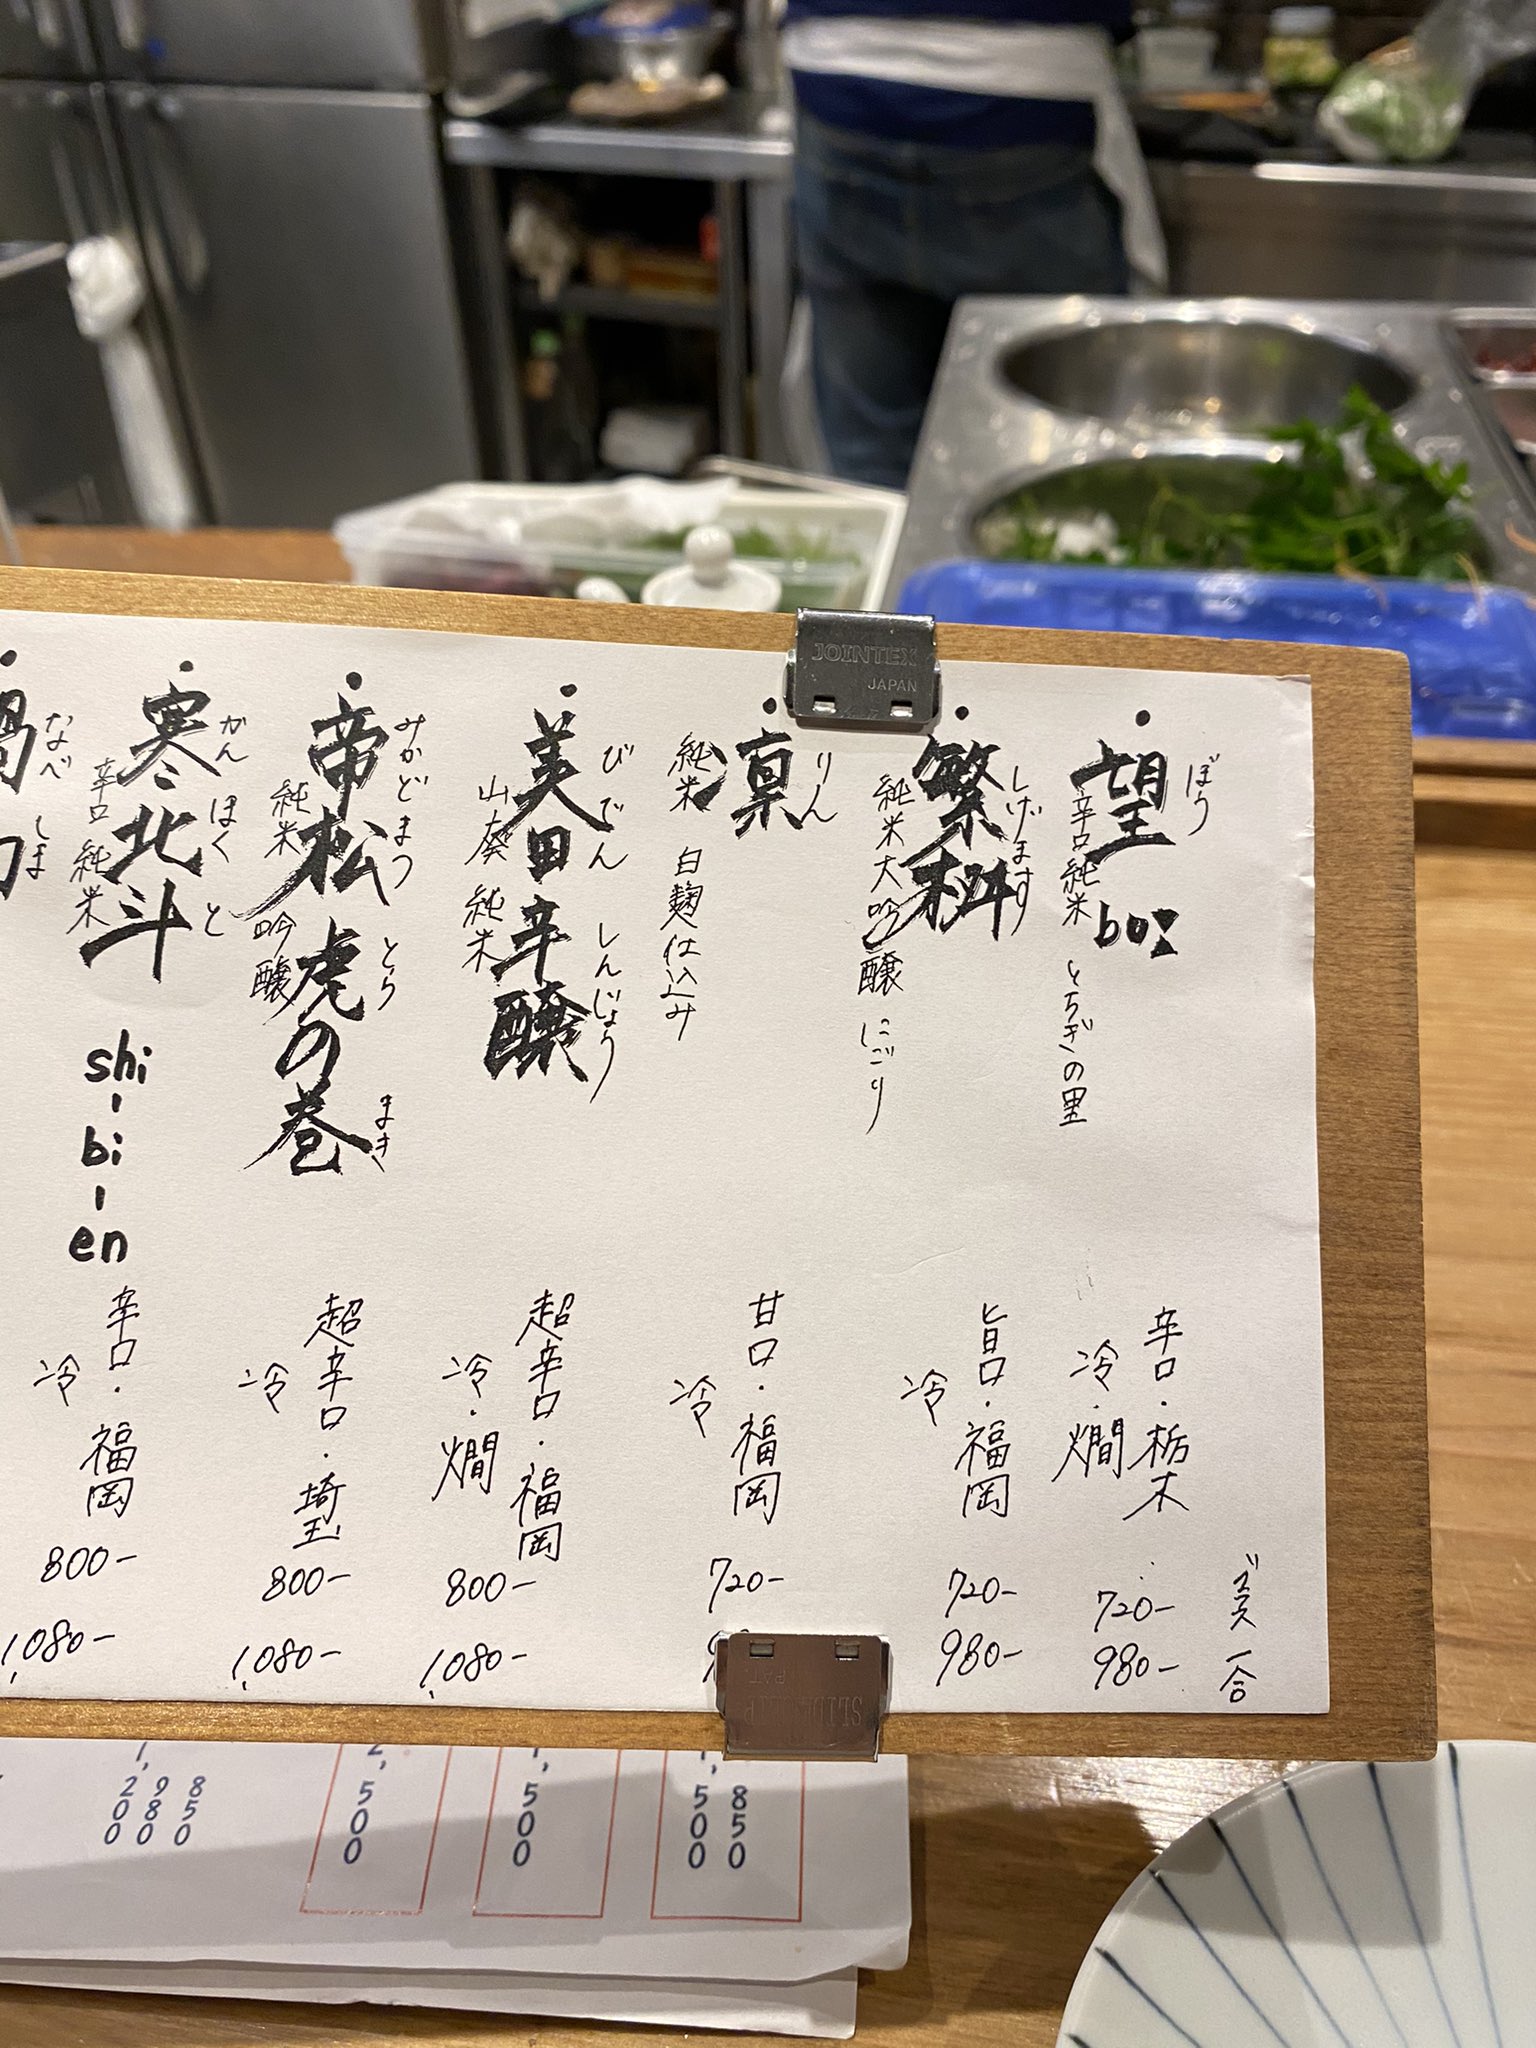 望 bo:
ぼう
辛口純米 とちぎの里
辛口・栃木
冷・燗
グラス 720-
一合 980-
繁桝
しげます
純米大吟醸 にごり
旨口・福岡
冷
720-
980-
凛
りん
純米 白麹仕込み
甘口・福岡
冷
720-
美田 辛醸
びでん しんじょう
山廃 純米
超辛口・福岡
冷・燗
800-
1,080-
帝松 虎の巻
みかどまつ とら まき
純米 吟醸
超辛口・埼玉
冷
800-
1,080-
寒北斗
かん ほく と
shi-bi-en
辛口 純米
辛口・福岡
冷
800-
1,080-
なべ しま
JOINTEX
JAPAN
850
1,500
1,500
2,500
850
980
1,200